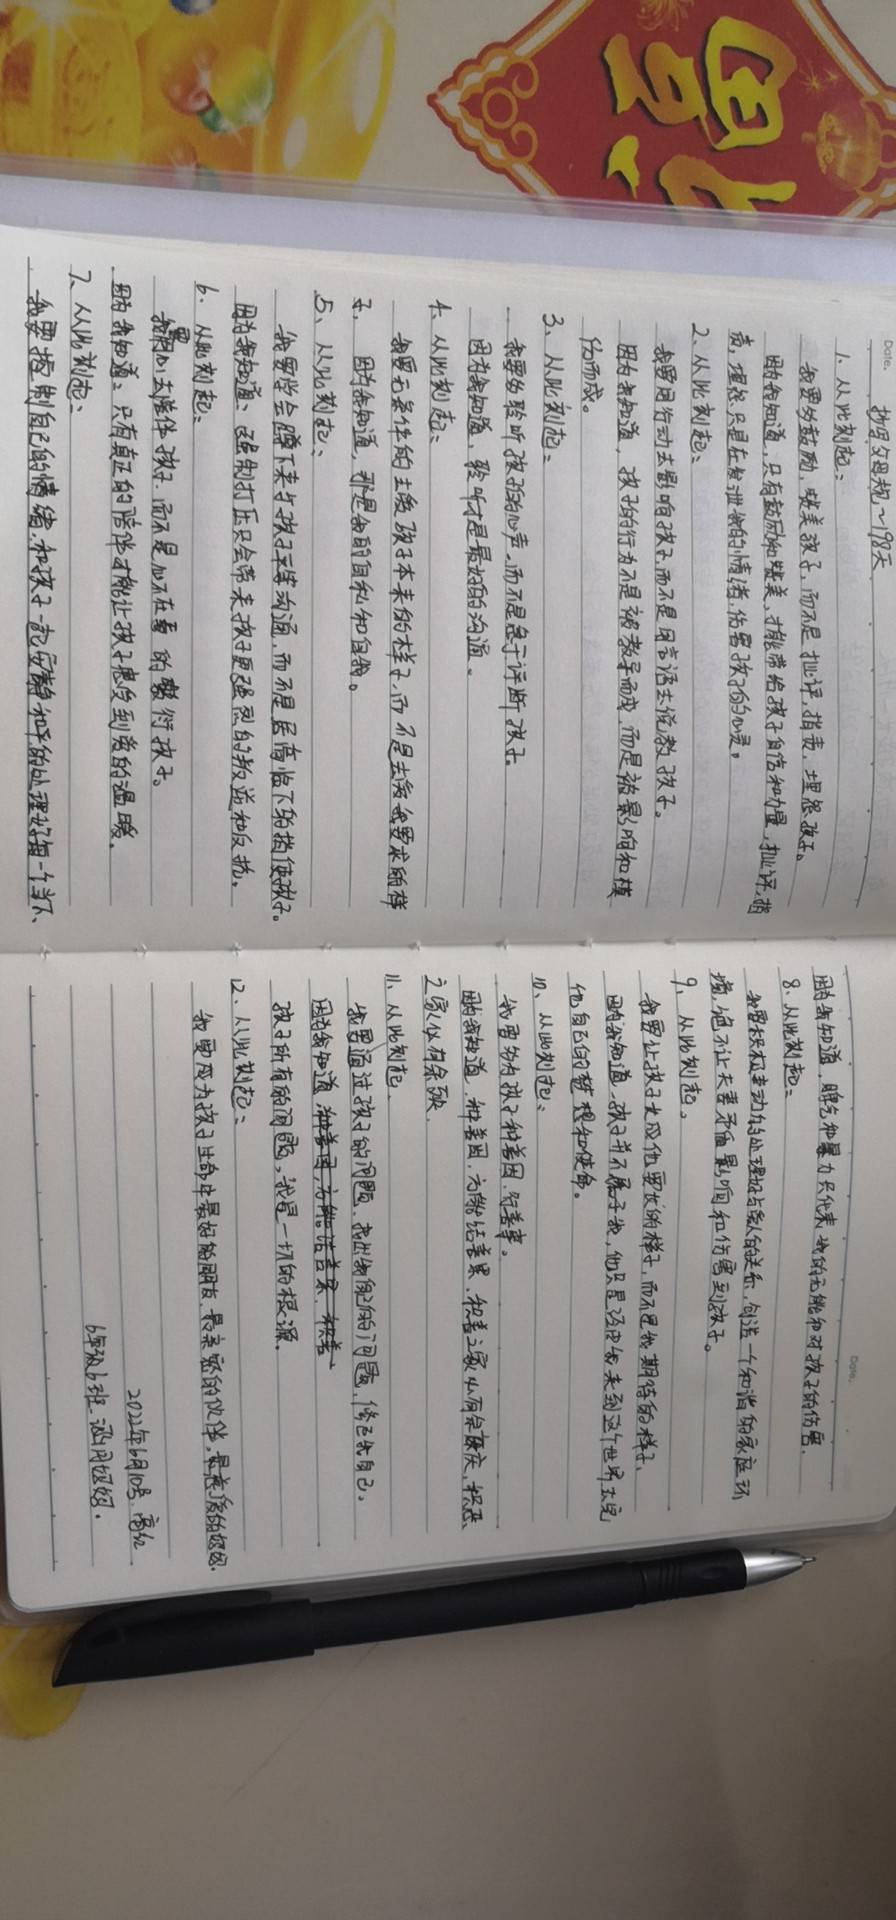 Date.
抄写父母规~198天
1、从此刻起:
我要多鼓励,赞美孩子,而不是批评,指责,埋怨孩子。
因为我知道,只有鼓励和赞美,才能带给孩子自信和力量,批评,指
责,埋怨只是在发泄我的情绪,伤害孩子的心灵。
2、从此刻起:
我要用行动去影响孩子,而不是用言语去说教孩子。
因为我知道,孩子的行为不是被教导而成,而是被影响和模
仿而成。
3、从此刻起:
我要多聆听孩子的心声,而不是急于评断孩子。
因为我知道,聆听才是最好的沟通。
4、从此刻起:
我要无条件的去爱孩子本来的样子,而不是去爱我要求的样
子,因为我知道,那是我的自私和自我。
5、从此刻起、
我要学会蹲下来与孩子平等沟通,而不是居高临下的指使孩子。
因为我知道、强制打压只会带来孩子更强烈的叛逆和反抗。
6、从此刻起:
我要用心去陪伴孩子,而不是心不在焉的敷衍孩子。
因为我知道:只有真正的陪伴才能让孩子感受到爱的温暖。
7、从此刻起、
我要控制自己的情绪,和孩子一起安静和平的处理好每一个当下、
Date.
因为我知道,脾气和暴力只代表我的无能和对孩子的伤害、
8、从此刻起:
我要积极主动的处理好与家人的关系,创造一个和谐的家庭环
境,绝不让夫妻矛盾影响和伤害到孩子。
9、从此刻起。
我要让孩子长成他要长的样子,而不是我期待的样子、
因为我知道、孩子并不属于我,他只是经由我来到这个世界去完
他自己的梦想和使命。
10、从此刻起:
我要多为孩子种善因,行善事。
因为我知道、种善因,方能结善果,积善之家必有余庆,积恶、
之家必有余殃.
11、从此刻起、
我要通过孩子的问题,找出我自己的问题,修己先自己。
因为我知道 种善因,方能结善果,积善
孩子所有的问题,我是一切的根源。
12、从此刻起:
我要成为孩子生命中最好的朋友,最亲密的伙伴,最慈爱的妈妈.
2022年6月10号,高红
6年级6班 妈妈.